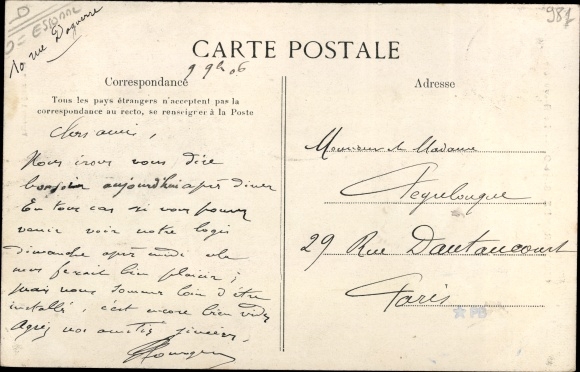 D
ESPDDC
10 rue Daguerre
987
CARTE POSTALE
9 9bre 06
Correspondance
Adresse
Tous les pays étrangers n'acceptent pas la
correspondance au recto, se renseigner à la Poste
Chers amis,
Nous irons vous dire
bonjour aujourd'hui après diner
En tous cas si vous pouvez
venir voir notre logis
dimanche après midi cela
nous ferait bien plaisir ;
mais nous sommes loin d'être
installés, c'est encore bien vide
Agréez nos amitiés sincères,
Monsieur et Madame
29 Rue Dautancourt
Paris